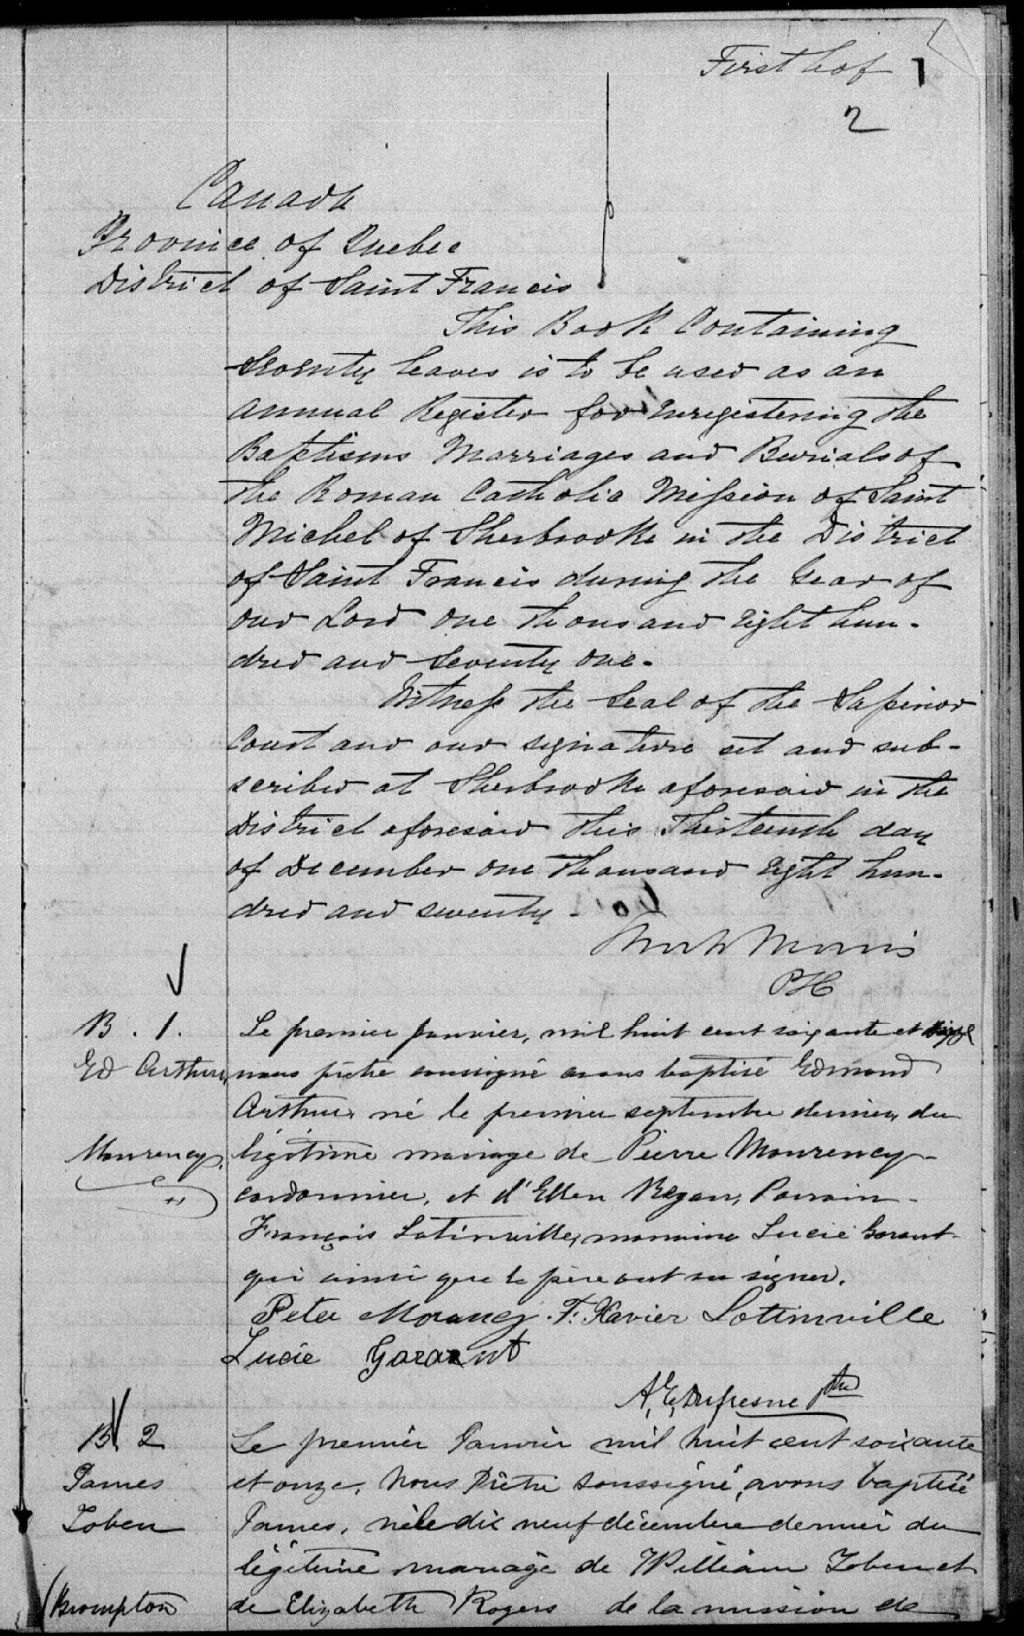 First hof 1
2
Canada
Province of Quebec
District of Saint Francis
This Book Containing
Seventy leaves is to be used as an
Annual Register for Enregistering the
Baptisms Marriages and Burials of
the Roman Catholic Mission of Saint
Michel of Sherbrooke in the District
of Saint Francis during the Year of
our Lord One thousand Eight hun-
dred and Seventy one.
Witness the Seal of the Superior
Court and our signature set and sub-
scribed at Sherbrooke aforesaid in the
District aforesaid this Thirteenth day
of December one thousand Eight hun-
dred and seventy -
Morris
PSC
B. 1. Le premier Janvier, mil huit cent soixante et onze
Ed Arthur, nous prêtre soussigné avons baptisé Edmond
Arthur, né le premier septembre dernier, du
Mourency. légitime mariage de Pierre Mourency
cordonnier, et d'Ellen Regan, Parrain
François Lotinville, marraine Lucie Garant
qui ainsi que le père ont su signer.
Peter Morancy. F. Xavier Lotinville
Lucie Garant
A. E. Dufresne Ptre
B 2 Le premier Janvier mil huit cent soixante
James et onze, Nous Prêtre soussigné, avons baptisé
Toben James, né le dix neuf décembre dernier du
légitime mariage de William Toben et
Brompton de Elizabeth Rogers de la mission de